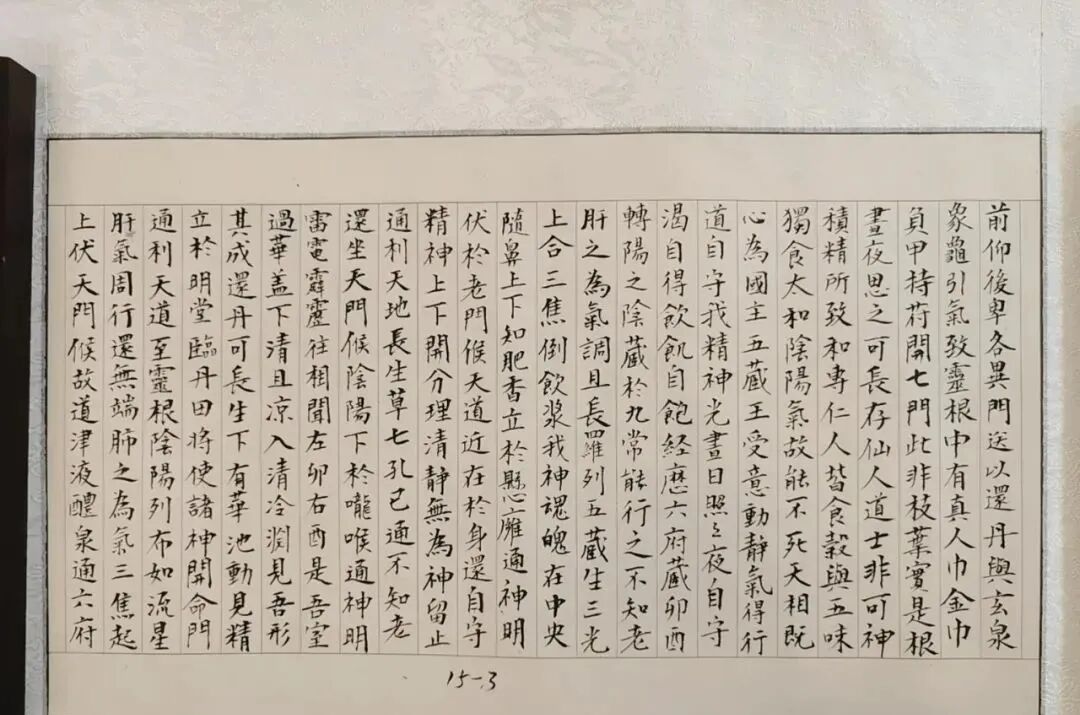 前仰後卑各異門送以還丹與玄泉
象龜引氣致靈根中有真人巾金巾
負甲持苻開七門此非枝葉實是根
晝夜思之可長存仙人道士非可神
積精所致和專仁人皆食穀與五味
獨食太和陰陽氣故能不死天相既
心為國主五藏王受意動靜氣得行
道自守我精神光晝日照之夜自守
渴自得飲飢自飽經歷六府藏卯酉
轉陽之陰藏於九常能行之不知老
肝之為氣調且長羅列五藏生三光
上合三焦倒飲漿我神魂魄在中央
隨鼻上下知肥香立於懸廱通神明
伏於老門候天道近在於身還自守
精神上下開分理清靜無為神留止
通利天地長生草七孔已通不知老
還坐天門候陰陽下於嚨喉通神明
過華蓋下清且凉入清冷淵見吾形
其成還丹可長生下有華池動見精
立於明堂臨丹田將使諸神開命門
通利天道至靈根陰陽列布如流星
肝氣周行還無端肺之為氣三焦起
上伏天門候故道津液醴泉通六府
15-3